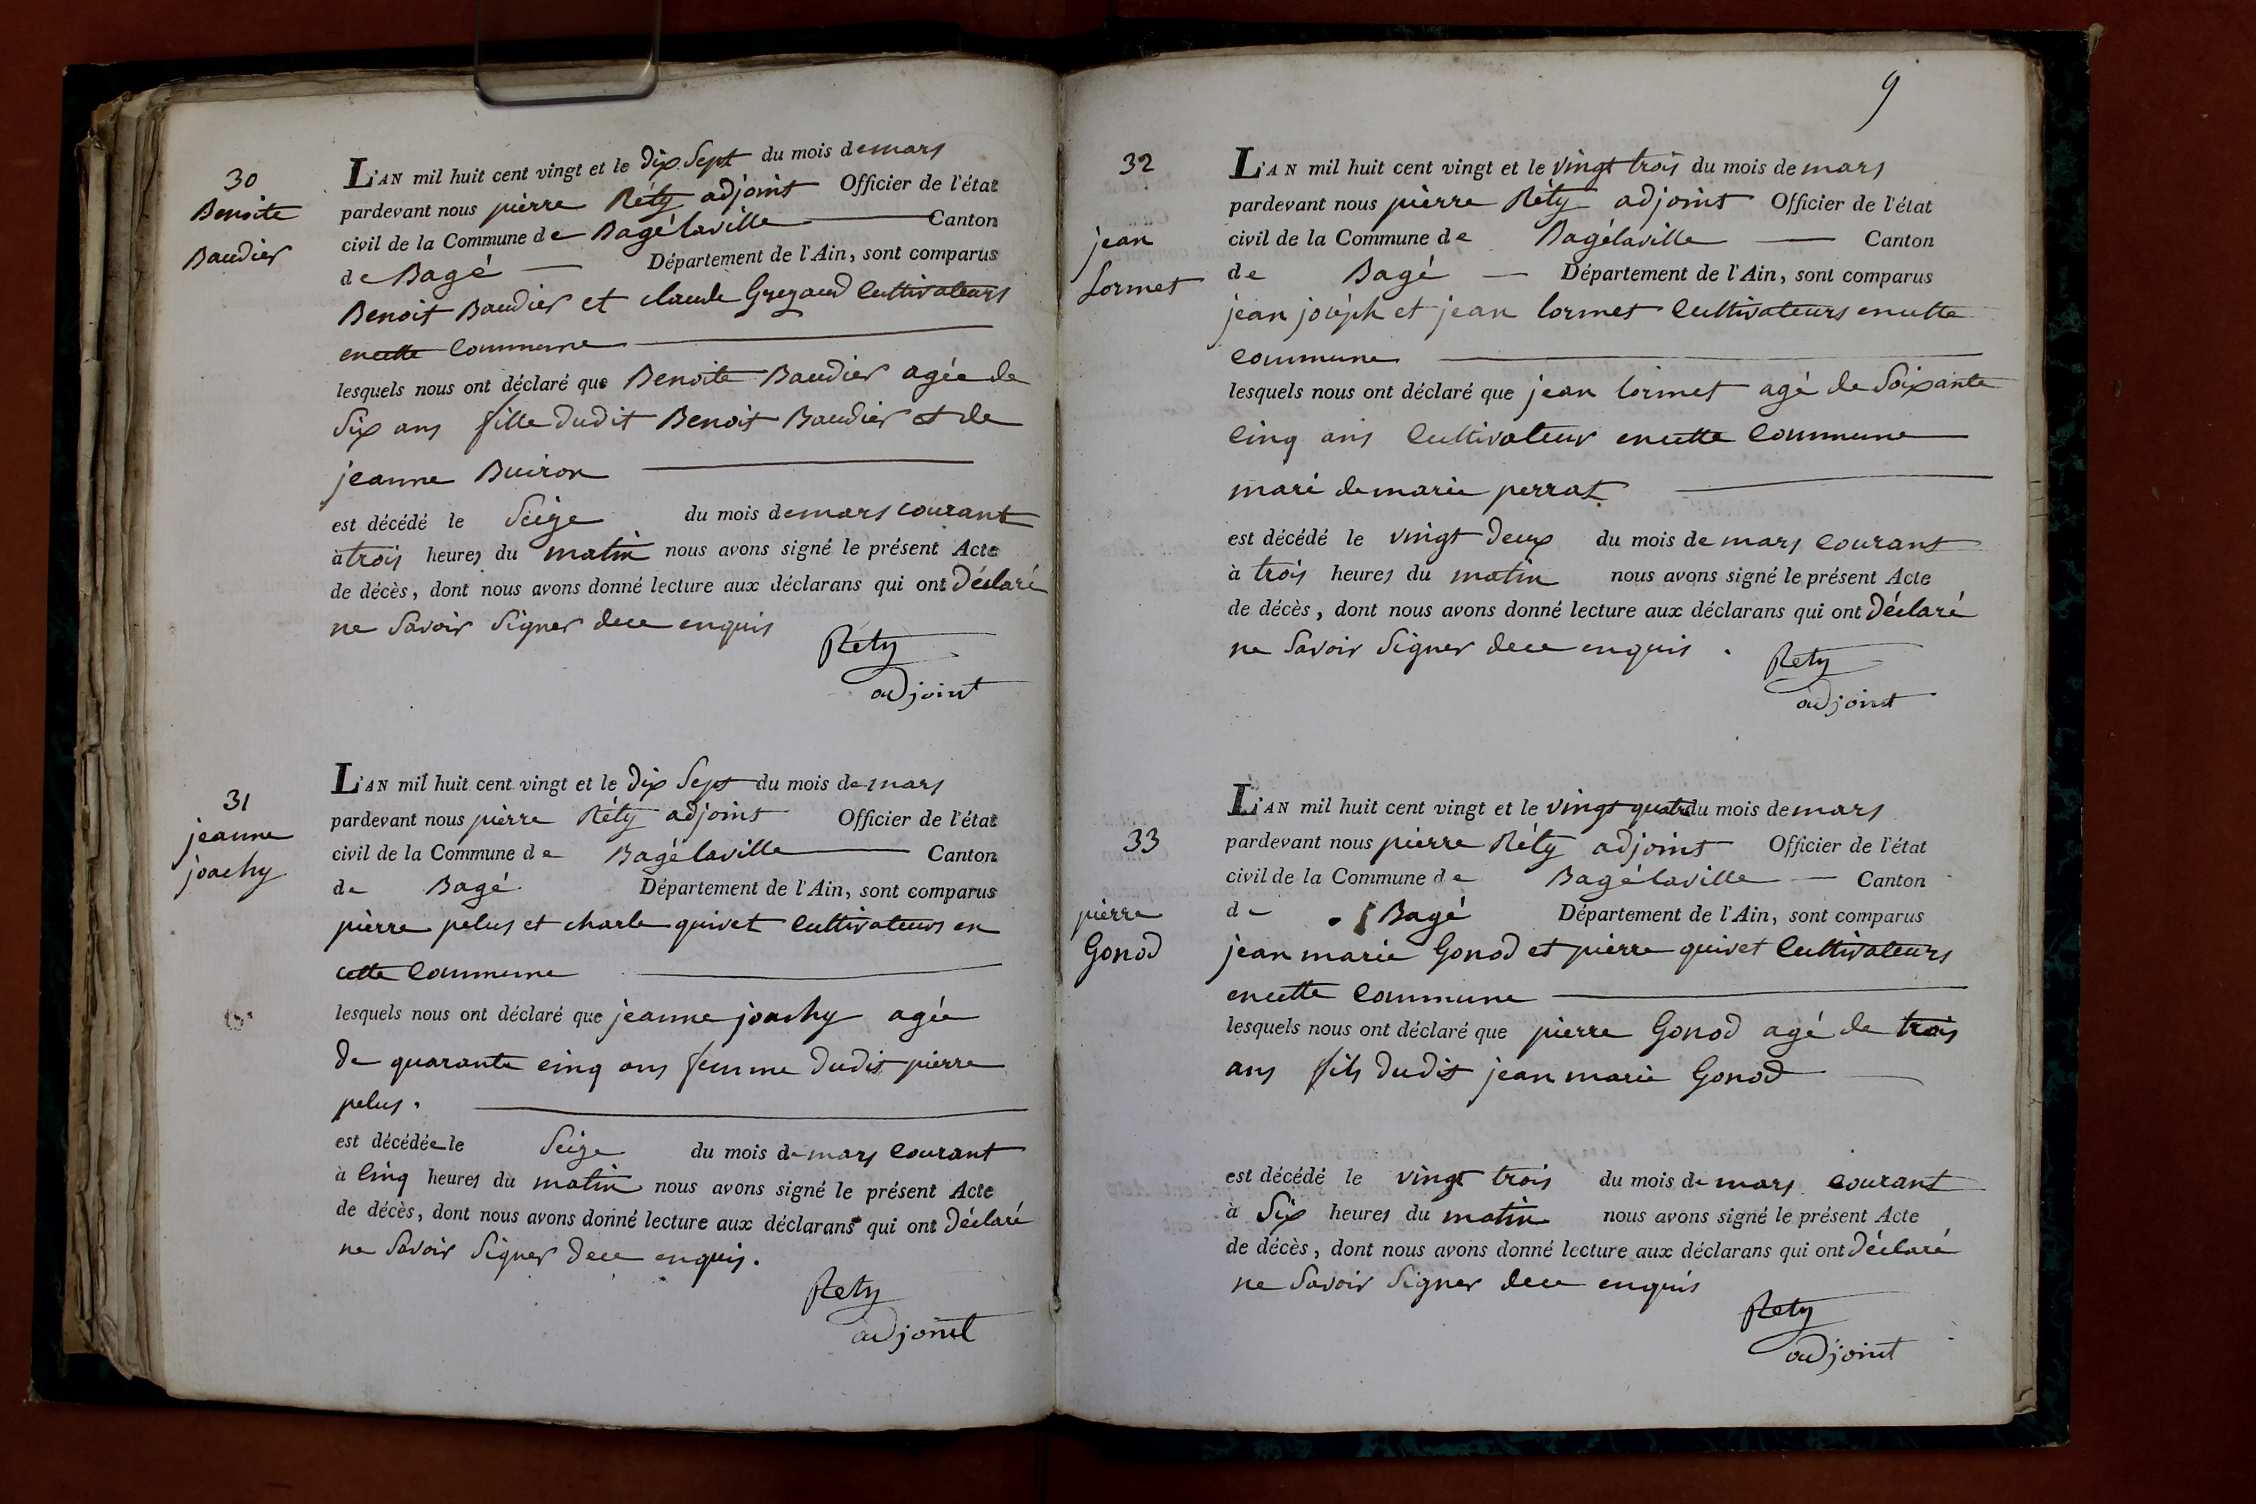 30
Benoite
Baudier
L'AN mil huit cent vingt et le dix Sept du mois de mars
pardevant nous pierre Réty adjoint Officier de l'état
civil de la Commune de Bagélaville Canton
de Bagé Département de l'Ain, sont comparus
Benoit Baudier et claude cultivateurs
en cette commune
lesquels nous ont déclaré que Benoite Baudier agée de
Six ans fille dudit Benoit Baudier et de
jeanne Buiron
est décédé le Seize du mois de mars courant
à trois heures du matin nous avons signé le présent Acte
de décès, dont nous avons donné lecture aux déclarans qui ont déclaré
ne Savoir Signer de ce enquis
Réty
adjoint
31
jeanne
joachy
L'AN mil huit cent vingt et le dix Sept du mois de mars
pardevant nous pierre Réty adjoint Officier de l'état
civil de la Commune de Bagélaville Canton
de Bagé Département de l'Ain, sont comparus
pierre pelus et charle quivet cultivateurs en
cette commune
lesquels nous ont déclaré que jeanne joachy agée
de quarante cinq ans femme dudit pierre
pelus.
est décédée le Seize du mois de mars courant
à cinq heures du matin nous avons signé le présent Acte
de décès, dont nous avons donné lecture aux déclarans qui ont déclaré
ne Savoir Signer de ce enquis.
Rety
adjoint
9
32
jean
Lormet
L'AN mil huit cent vingt et le vingt trois du mois de mars
pardevant nous pierre Réty adjoint Officier de l'état
civil de la Commune de Bagélaville Canton
de Bagé Département de l'Ain, sont comparus
jean joséph et jean lormet cultivateurs en cette
commune
lesquels nous ont déclaré que jean lormet agé de Soixante
cinq ans cultivateur en cette commune
marié de marie perrat
est décédé le vingt deux du mois de mars courant
à trois heures du matin nous avons signé le présent Acte
de décès, dont nous avons donné lecture aux déclarans qui ont déclaré
ne Savoir Signer de ce enquis.
Rety
adjoint
33
pierre
Gonod
L'AN mil huit cent vingt et le vingt quatre du mois de mars
pardevant nous pierre Réty adjoint Officier de l'état
civil de la Commune de Bagélaville Canton
de Bagé Département de l'Ain, sont comparus
jean marie Gonod et pierre quivet cultivateurs
en cette commune
lesquels nous ont déclaré que pierre Gonod agé de trois
ans fils dudit jean marie Gonod
est décédé le vingt trois du mois de mars courant
à Six heures du matin nous avons signé le présent Acte
de décès, dont nous avons donné lecture aux déclarans qui ont déclaré
ne Savoir Signer de ce enquis
Rety
adjoint